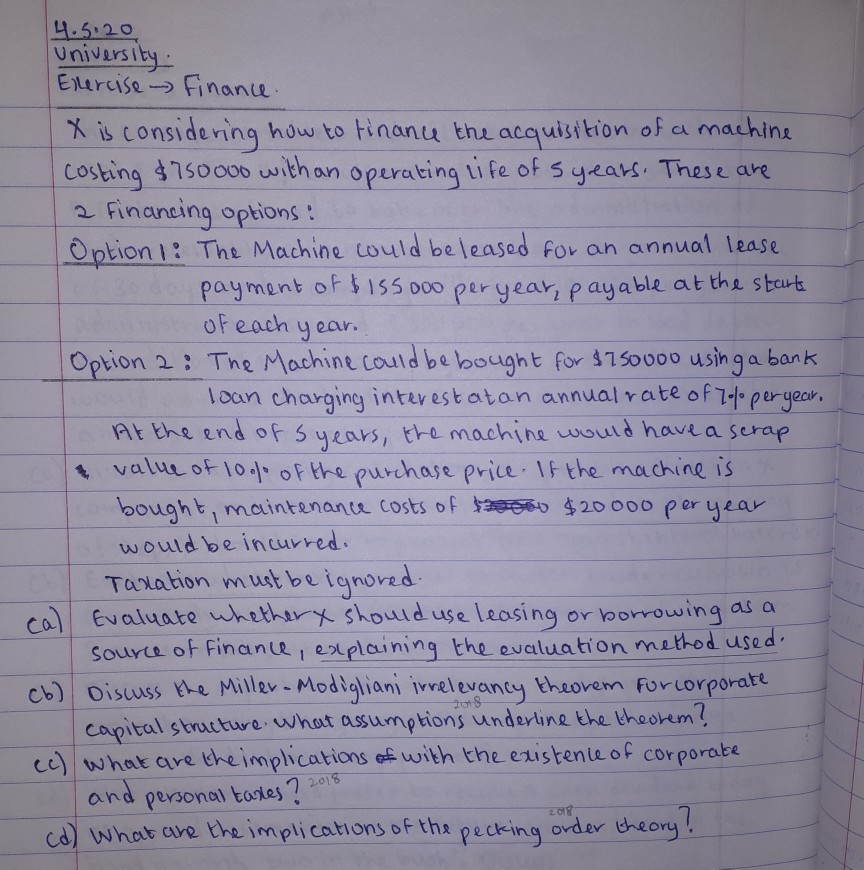 4.5.20
University.
Exercise → Finance.
X is considering how to finance the acquisition of a machine
costing $750000 with an operating life of 5 years. These are
2 financing options:
Option 1: The Machine could be leased for an annual lease
payment of $155000 per year, payable at the starts
of each year.
Option 2: The Machine could be bought for $750000 using a bank
loan charging interest at an annual rate of 7% per year.
At the end of 5 years, the machine would have a scrap
value of 10% of the purchase price. If the machine is
bought, maintenance costs of $20000 per year
would be incurred.
Taxation must be ignored.
(a) Evaluate whether X should use leasing or borrowing as a
source of finance, explaining the evaluation method used.
(b) Discuss the Miller-Modigliani irrelevancy theorem for corporate
capital structure. What assumptions underline the theorem? 2018
(c) What are the implications of with the existence of corporate
and personal taxes? 2018
(d) What are the implications of the pecking order theory? 2018